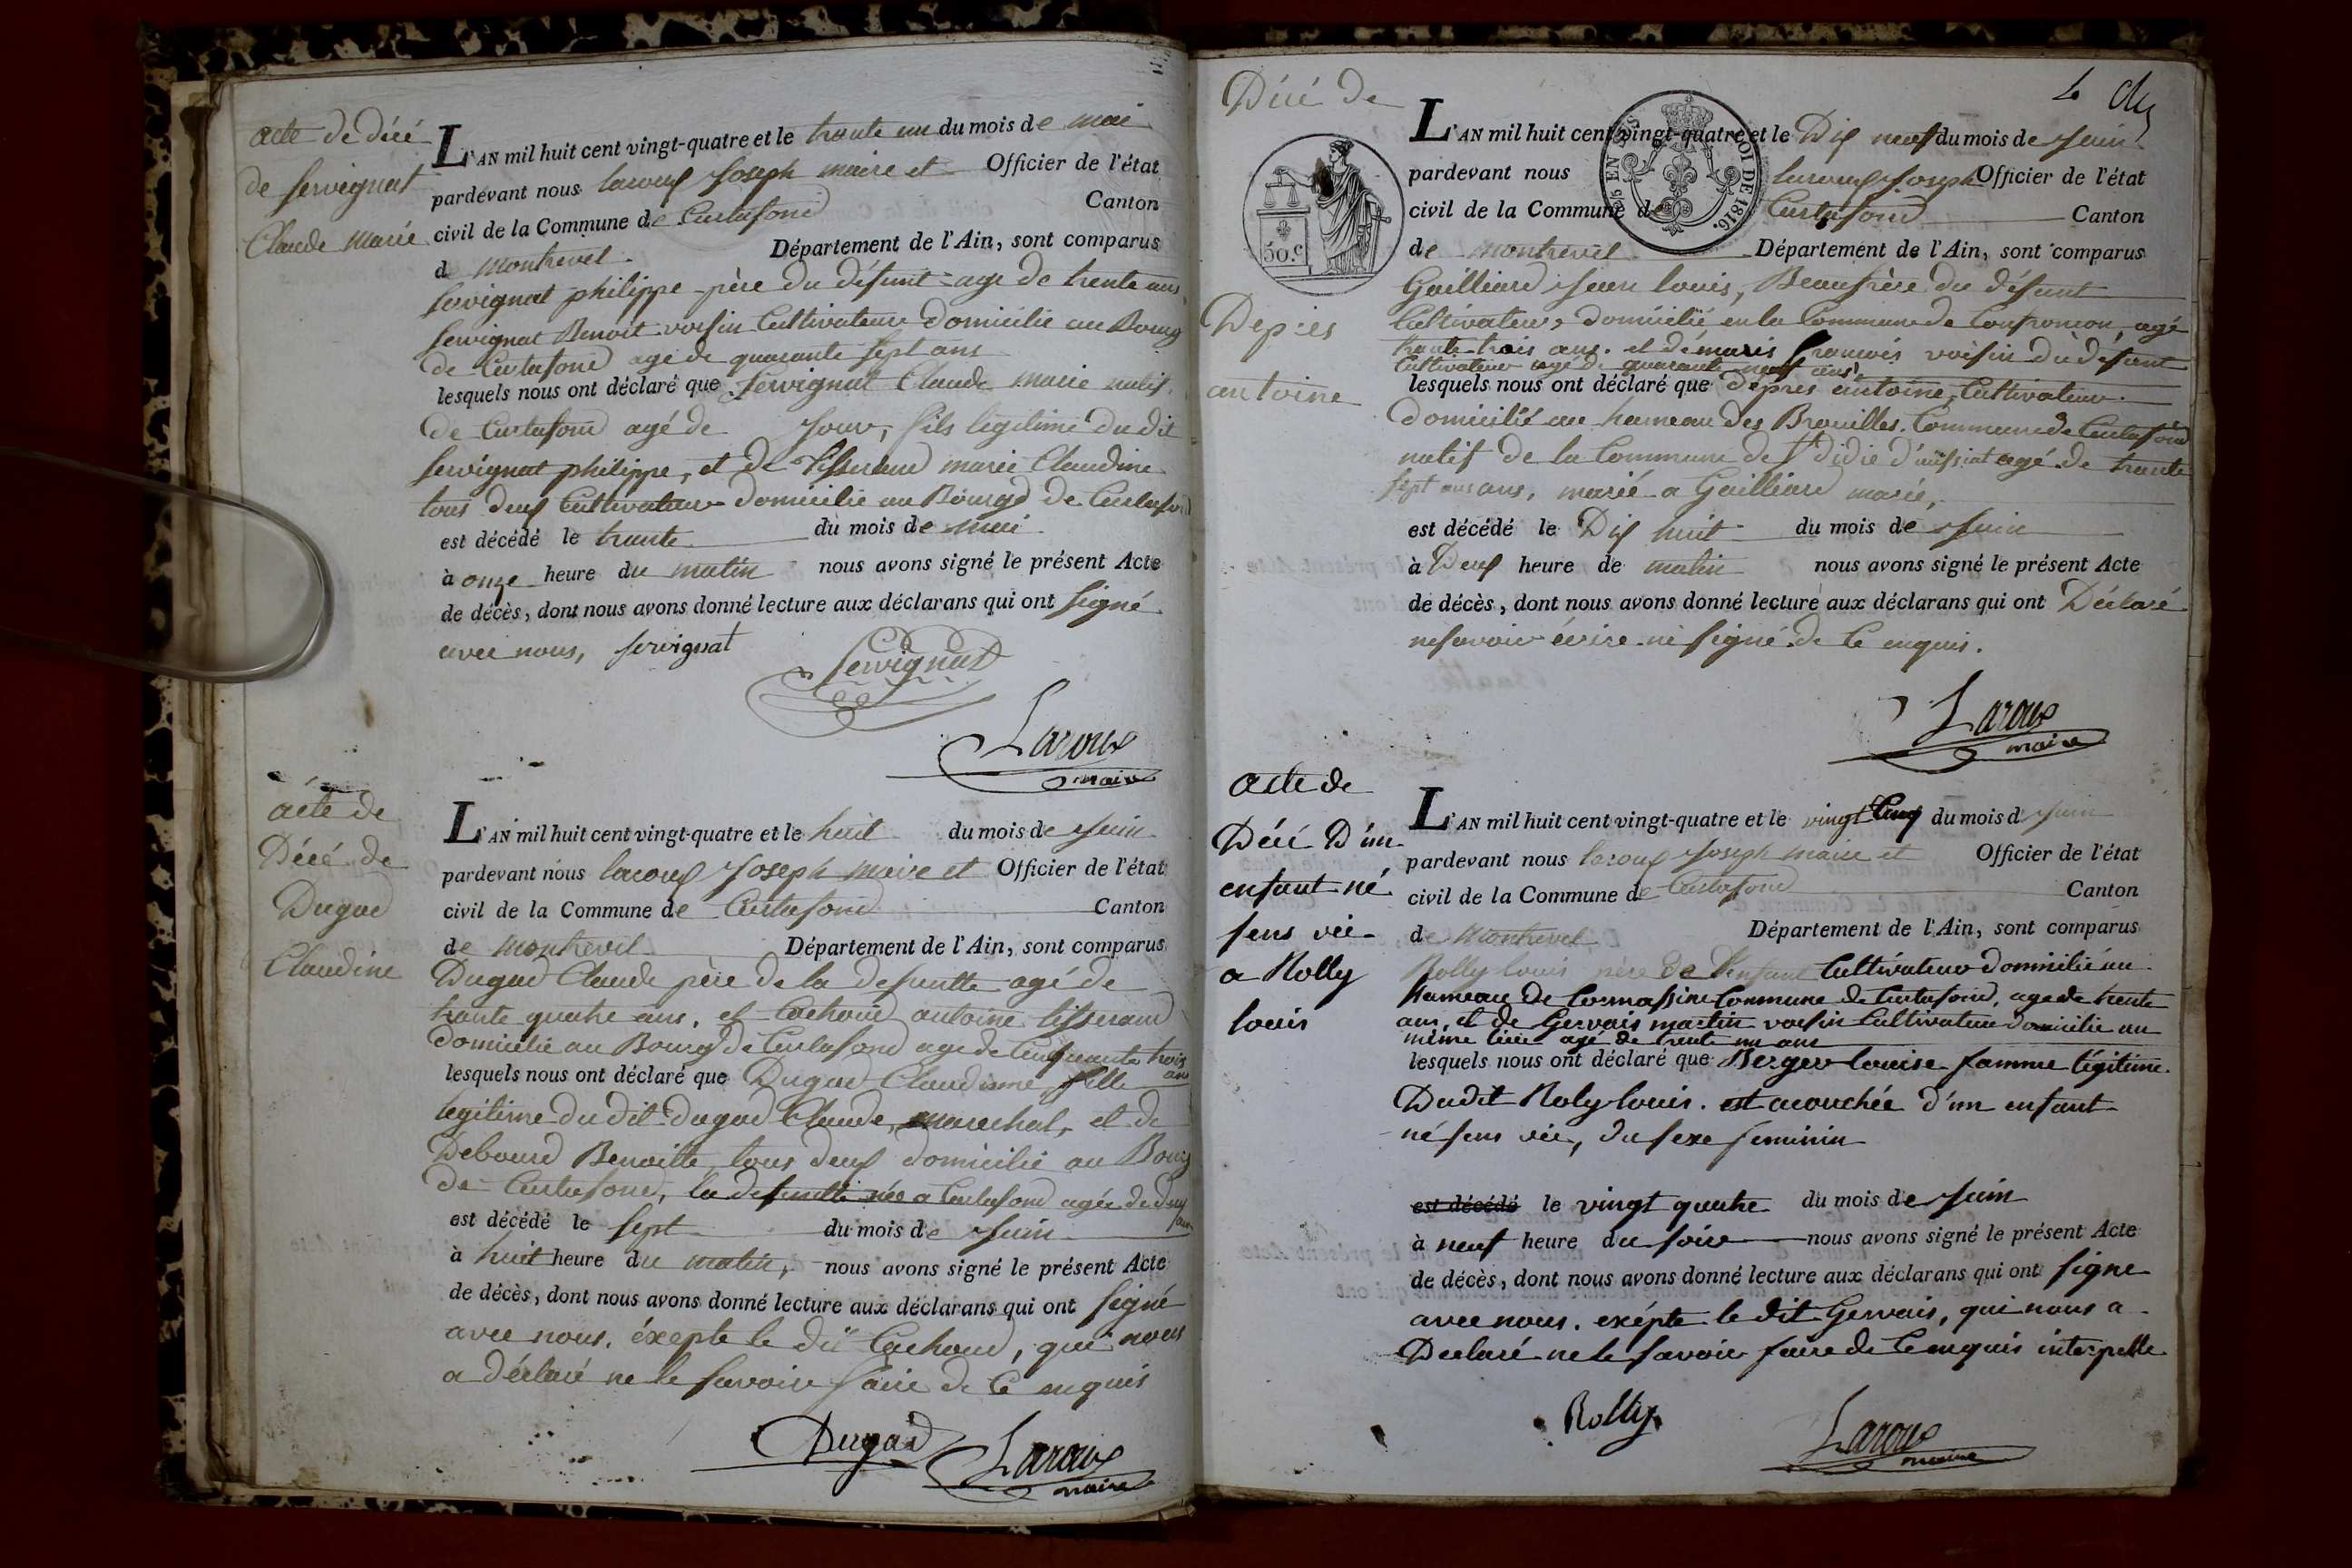 acte de décé
de servignat
Claude marie
L'AN mil huit cent vingt-quatre et le trante un du mois de mai
pardevant nous laroux Joseph maire et Officier de l'état
civil de la Commune de Curtafond Canton
de montrevel. Département de l'Ain, sont comparus
servignat philippe père du défunt agé de trente ans
servignat Benoit voisin Cultivateur domicilié au Bourg
de Curtafond agé de quarante sept ans
lesquels nous ont déclaré que servignat Claude marie natif
de Curtafond agé de jour, fils legitime du dit
servignat philippe, et de tisserand marie Claudine
tous deux Cultivateur domicilié au Bourgd de Curtafond
est décédé le trante du mois de mai
à onze heure du matin nous avons signé le présent Acte
de décès, dont nous avons donné lecture aux déclarans qui ont signé
avec nous, servignat
Servignat
Laroux
maire
acte de
Décé de
Dugad
Claudine
L'AN mil huit cent vingt-quatre et le huit du mois de Juin
pardevant nous laroux Joseph maire et Officier de l'état
civil de la Commune de Curtafond Canton
de montrevel Département de l'Ain, sont comparus
Dugad Claude père de la defuntte agé de
trante quatre ans, et Cachoud antoine tisserand
domicilié au Bourg de Curtafond agé de Cinquante trois
ans
lesquels nous ont déclaré que Dugad Claudinne fille
legitime du dit dugad Claude, marechal, et de
Debourd Benoitte, tous deux domicilié au Bourg
de Curtafond, la defuntte née a Curtafond agée de deux
ans
est décédé le sept du mois de Juin
à huit heure du matin, nous avons signé le présent Acte
de décès, dont nous avons donné lecture aux déclarans qui ont signé
avec nous. éxepte le dit Cachoud, qui nous
a déclaré ne le savoir faire de Ce enquis
Dugad
Laroux
maire
4
Décé de
Depres
antoine
50 C.
EN SUS
LOI DE 1816.
L'AN mil huit cent vingt-quatre et le Dix neuf du mois de Juin
pardevant nous laroux Joseph Officier de l'état
civil de la Commune de Curtafond Canton
de montrevel Département de l'Ain, sont comparus
Gailliard Jean louis, Beaufrère du défunt
Cultivateur, domicilié en la Commune de Confrancon, agé
trante trois ans. et démaris francois voisin du défunt
Cultivateur agé de quarante neuf ans
lesquels nous ont déclaré que depres antoine, Cultivateur
domicilié au hameau des Brouilles. Commune de Curtafond
natif de la Commune de St didié d'aussiat agé de trante
sept ans ans, marié a Gailliard marie,
est décédé le Dix huit du mois de Juin
à Deux heure de matin nous avons signé le présent Acte
de décès, dont nous avons donné lecture aux déclarans qui ont Déclaré
nesavoir écrire ni signé de Ce enquis.
Laroux
maire
acte de
Décé D'un
enfant né
sens vie
a Rolly
louis
L'AN mil huit cent vingt-quatre et le vingt Cinq du mois d Juin
pardevant nous laroux Joseph maire et Officier de l'état
civil de la Commune de Curtafond Canton
de Montrevel Département de l'Ain, sont comparus
Rolly louis père de l'enfant Cultivateur domicilié au
hameau de Cormassine Commune de Curtafond, agé de trente
ans, et de Gervais martin voisin Cultivateur domicilié au
même lieu agé de trente un ans
lesquels nous ont déclaré que Berger louise famme légitime
Dudit Roly louis. est acouchée d'un enfant
né sens vie, du sexe feminin
est décédé le vingt quatre du mois de Juin
à neuf heure du soir nous avons signé le présent Acte
de décès, dont nous avons donné lecture aux déclarans qui ont signe
avec nous. exépte le dit Gervais, qui nous a
Declaré ne le savoir faire de Ce enquis interpelle
Rolly
Laroux
maire